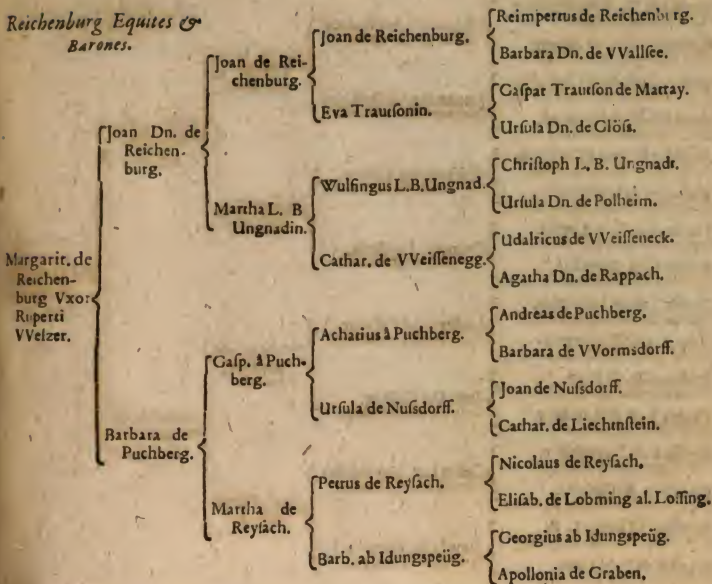 Reichenburg Equites &
Barones.
Margarit. de
Reichen-
burg Vxor
Ruperti
VVelzer.
Joan Dn. de
Reichen-
burg.
Barbara de
Puchberg.
Joan de Rei-
chenburg.
Martha L. B
Ungnadin.
Gasp. â Puch-
berg.
Martha de
Reyſach.
Joan de Reichenburg.
Eva Trautſonin.
Wulfingus L.B.Ungnad.
Cathar. de VVeiſſenegg.
Achatius â Puchberg.
Urſula de Nuſsdorff.
Petrus de Reyſach.
Barb. ab Idungspeüg.
Reimpertus de Reichenburg.
Barbara Dn. de VVallſee.
Gaſpar Trautſon de Matray.
Urſula Dn. de Glöſs.
Chriſtoph L. B. Ungnadt.
Urſula Dn. de Polheim.
Udalricus de VVeiſſeneck.
Agatha Dn. de Rappach.
Andreas de Puchberg.
Barbara de VVormsdorff.
Joan de Nuſsdorff.
Cathar. de Liechtnſtein.
Nicolaus de Reyſach,
Eliſab. de Lobming al. Loſſing.
Georgius ab Idungspeüg.
Apollonia de Graben,